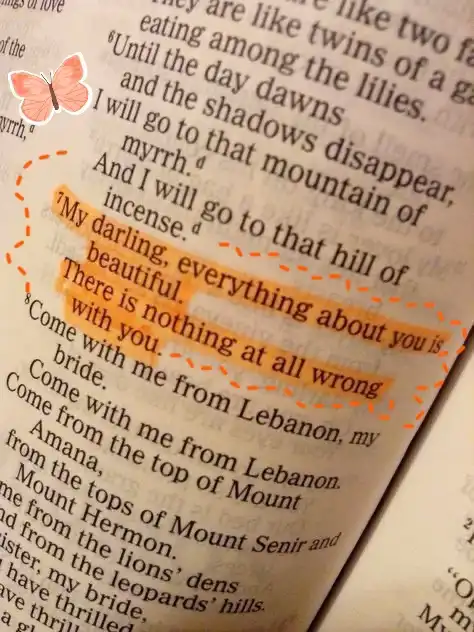 of love
of the
myrrh,d
They are like twins of a
eating among the lilies.
6Until the day dawns
and the shadows disappear,
I will go to that mountain of
myrrh.d
And I will go to that hill of
incense.d
7My darling, everything about you is
beautiful.
There is nothing at all wrong
with you.
8Come with me from Lebanon, my
bride.
Come with me from Lebanon.
Come from the top of Mount
Amana,
from the tops of Mount Senir and
Mount Hermon.
me from the lions' dens
from the leopards' hills.
my bride,
have thrilled
have